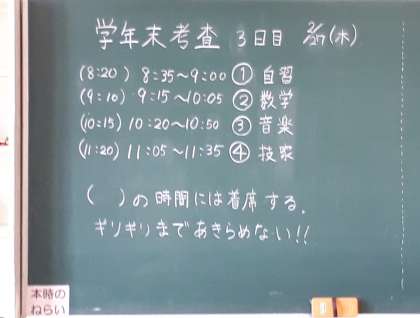 学年末考査 3日目 2/27(木)
(8:20) 8:35~9:00 ① 自習
(9:10) 9:15~10:05 ② 数学
(10:15) 10:20~10:50 ③ 音楽
(11:20) 11:05~11:35 ④ 技家
( )の時間には着席する.
ギリギリまであきらめない!!
本時の
ねらい